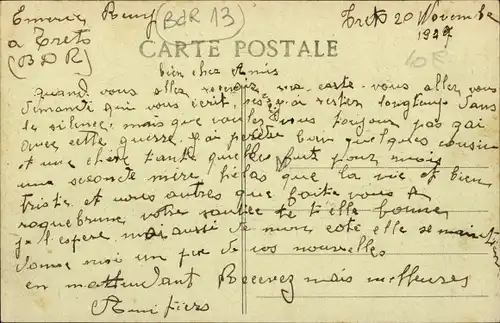 Emeric
BDR 13
Trets 20 Novembre
a Trets
(BDR)
1947
10F
CARTE POSTALE
bien cher Amis
quand vous allez ma carte vous allez vous
demanti qui vous écrit, j'ai rester longtemp dans
le silence, mais que voulez vous toujour pas gai
avec cette guerre j'ai perdu bien quelques cousin
et une chère tante quelle fut pour moi
une seconde mère hélas que la vie et bien
triste et vous autres que faite vous a
roquebrune votre santée te t elle bonne
je l'espere moi aussi de mon coté elle se maintien
donne moi un peu de vos nouvelles
en mattendant Recevez mais meilleures
Amitiers